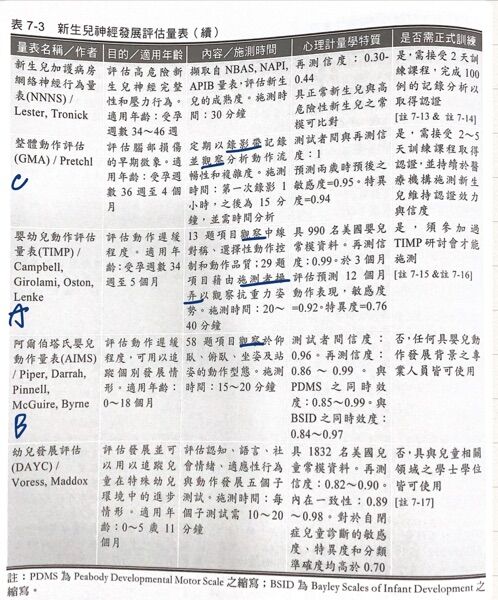 表 7-3 新生兒神經發展評估量表（續）
量表名稱/作者
目的/適用年齡
內容/施測時間
心理計量學特質
是否需正式訓練
新生兒加護病房
網絡神經行為量
表(NNNS) /
Lester, Tronick
評估高危險新
生兒神經完整
性和壓力行為。
適用年齡：受孕
週數 34～46 週
擷取自 NBAS, NAPI,
APIB 量表，評估新生
兒的成熟度。施測時
間：30 分鐘
再測信度：0.30-
0.44
具正常新生兒與高
危險性新生兒之常
模可比對
是，需接受 2 天訓
練課程，完成 100
例的記錄分析以
取得認證
[註 7-13 & 註 7-14]
整體動作評估
(GMA) / Pretchl
C
評估腦部損傷
的早期徵象。適
用年齡：受孕週
數 36 週至 4 個
月
定期以錄影帶記錄
並觀察分析動作流
暢性和複雜度。施測
時間：第一次錄影 1
小時，之後為 15 分
鐘，並需時間分析
測試者間與再測信
度：1
預測兩歲時預後之
敏感度=0.95。特異
度=0.94
是，需接受 2～5
天訓練課程取得
認證，並持續於醫
療機構施測新生
兒維持認證效力
與信度
嬰幼兒動作評估
量表(TIMP) /
Campbell,
Girolami, Oston,
Lenke
A
評估動作遲緩
程度。適用年
齡：受孕週數 34
週至 5 個月
13 題項目觀察中線
對稱、選擇性動作控
制和動作品質；29 題
項目藉由施測者操
弄以觀察抗重力姿
勢。施測時間：20～
40 分鐘
具 990 名美國嬰兒
常模資料。再測信
度：0.99。於 3 個月
評估預測 12 個月
動作表現，敏感度
=0.92。特異度=0.76
是，須參加過
TIMP 研討會才能
施測
[註 7-15 & 註 7-16]
阿爾伯塔氏嬰兒
動作量表(AIMS)
/ Piper, Darrah,
Pinnell,
McGuire, Byrne
B
評估動作遲緩
程度，可用以追
蹤個別發展情
形。適用年齡：
0～18 個月
58 題項目觀察於仰
臥、俯臥、坐姿及站
姿的動作型態。施測
時間：15～20 分鐘
測試者間信度：
0.96。再測信度：
0.86～0.99。與
PDMS 之同時效
度：0.85～0.99。與
BSID 之同時效度：
0.84～0.97
否，任何具嬰兒動
作發展背景之專
業人員皆可使用
幼兒發展評估
(DAYC) /
Voress, Maddox
評估發展並可
以用以追蹤兒
童在特殊幼兒
環境中的進步
情形。適用年
齡：0～5 歲 11
個月
評估認知、語言、社
會情緒、適應性行為
與動作發展五個子
測試。施測時間：每
個子測試需 10～20
分鐘
具 1832 名美國兒
童常模資料。再測
信度：0.82～0.90。
內在一致性：0.89
～0.98。對於自閉
症兒童診斷的敏感
度、特異度和分類
準確度均高於 0.70
否，具與兒童相關
領域之學士學位
皆可使用
[註 7-17]
註：PDMS 為 Peabody Developmental Motor Scale 之縮寫；BSID 為 Bayley Scales of Infant Development 之
縮寫。